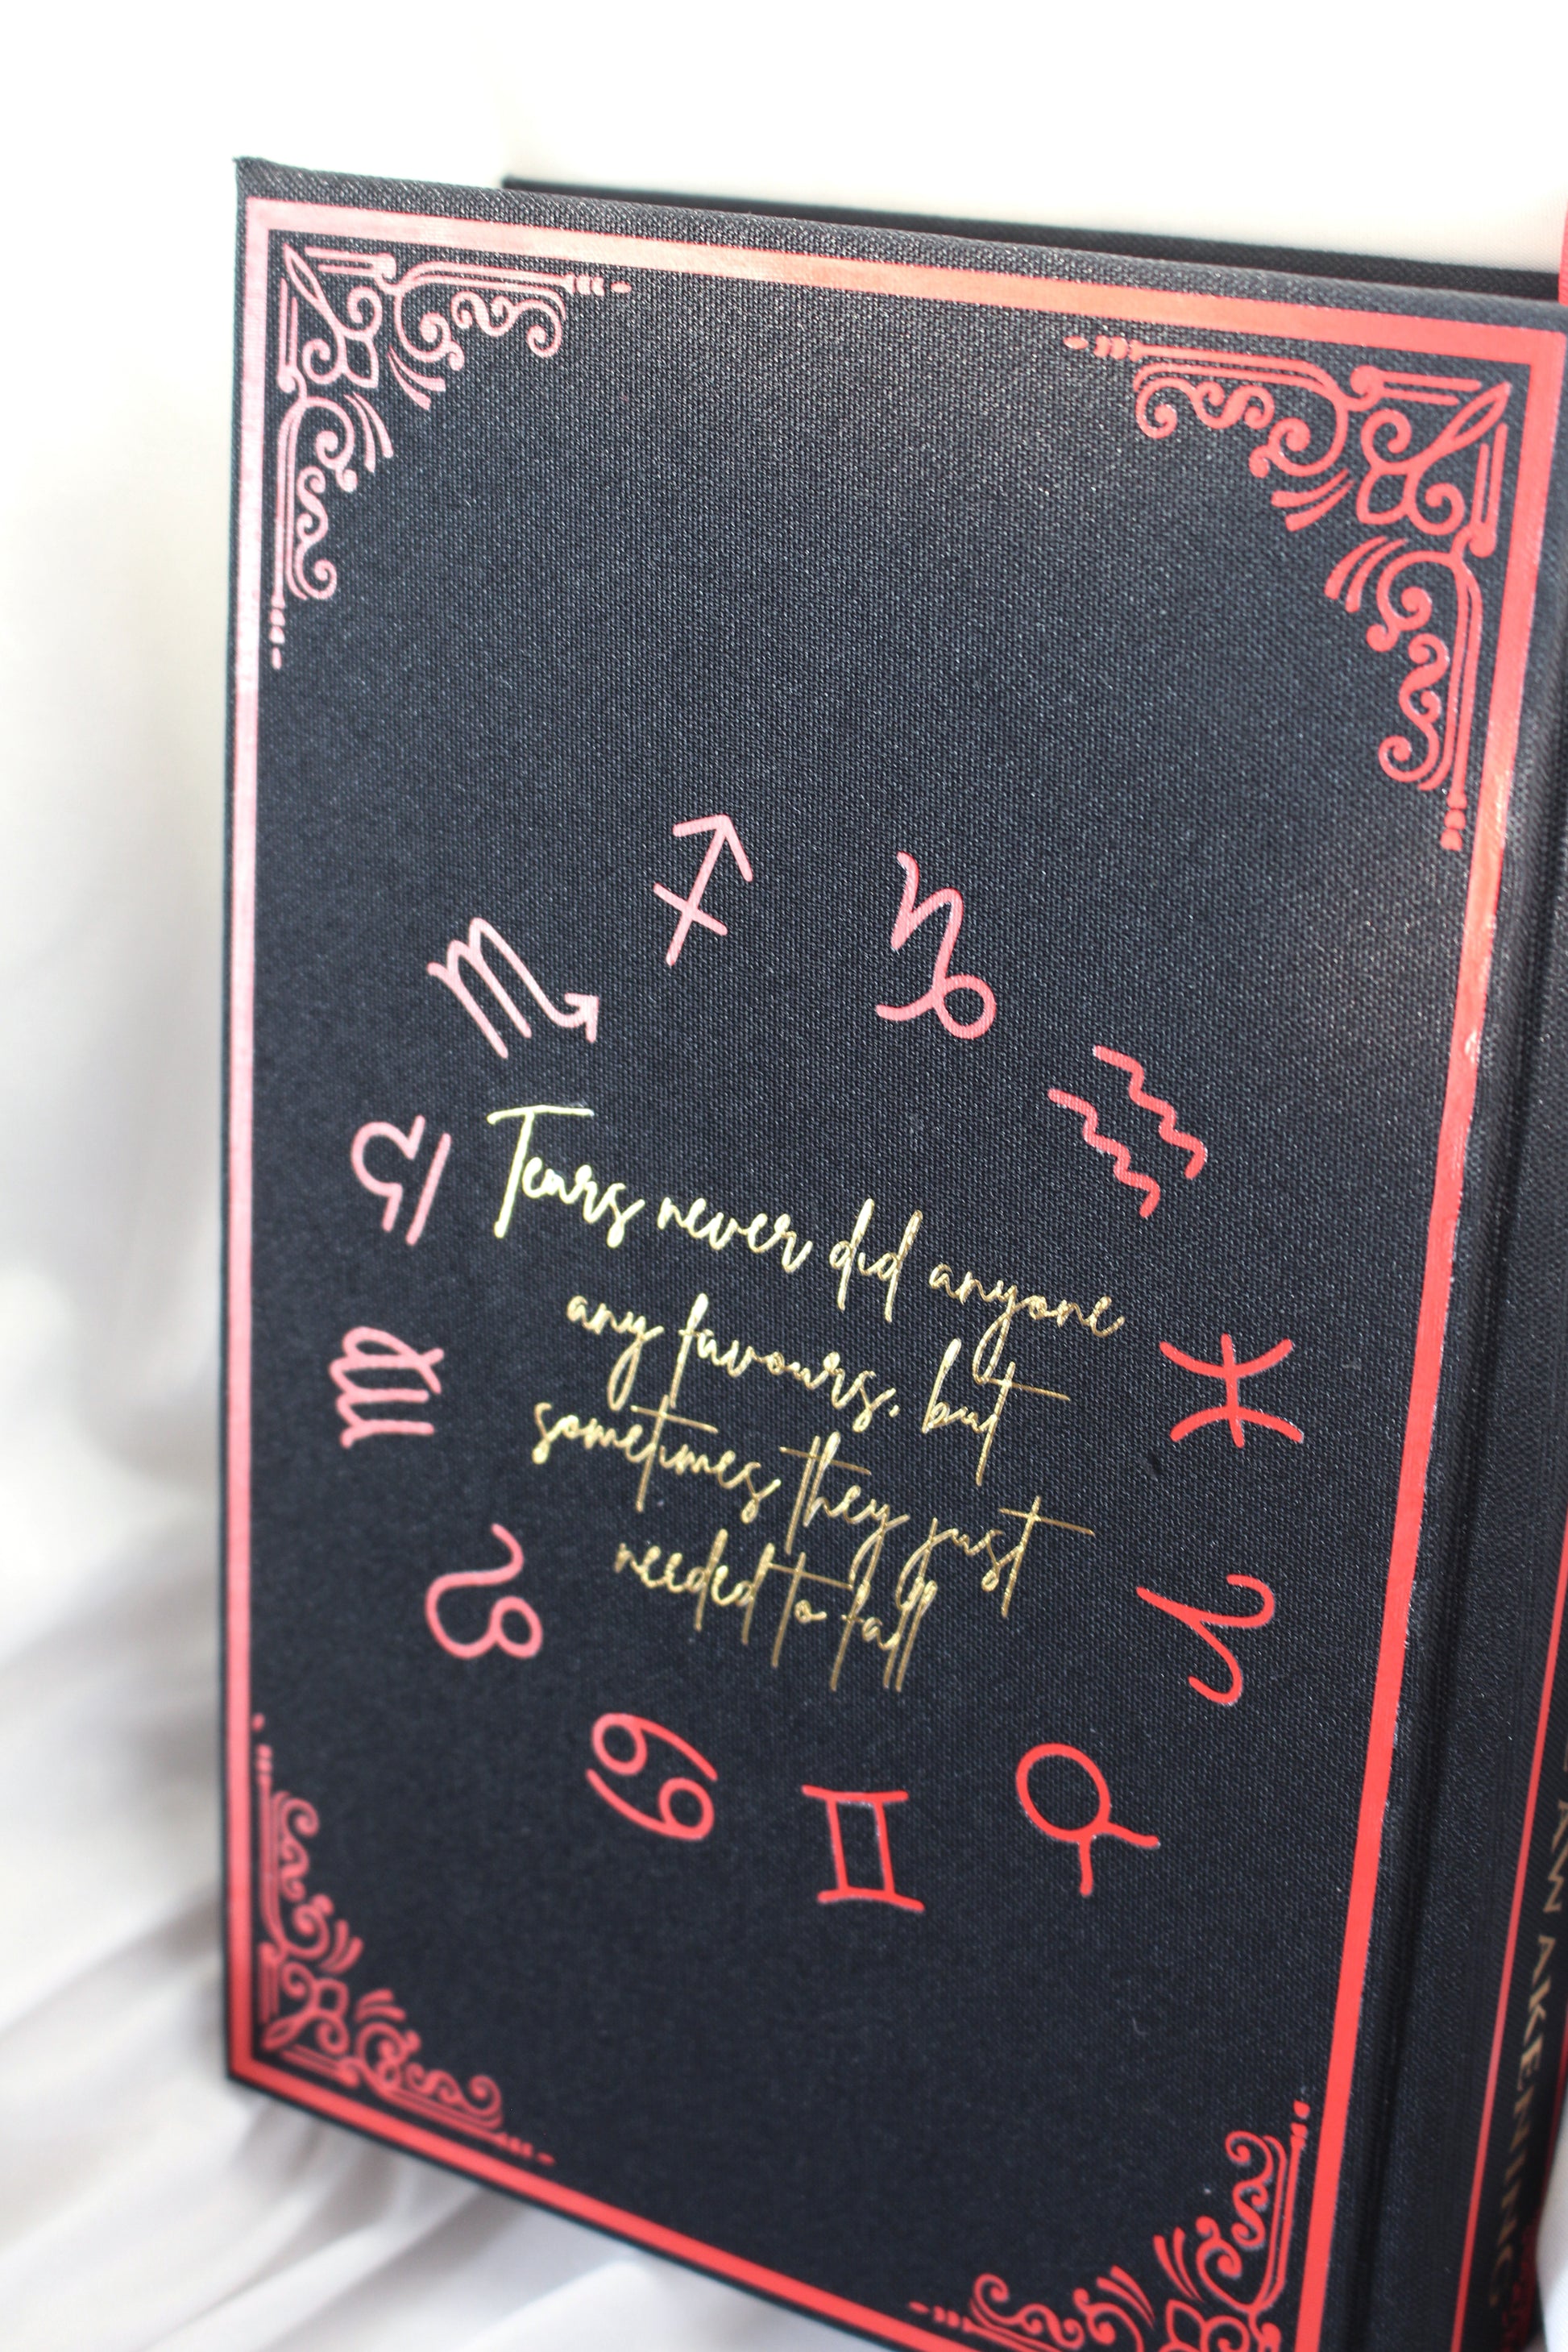 Tears never did anyone
any favours, but
sometimes they just
needed to fall
AWAKENING